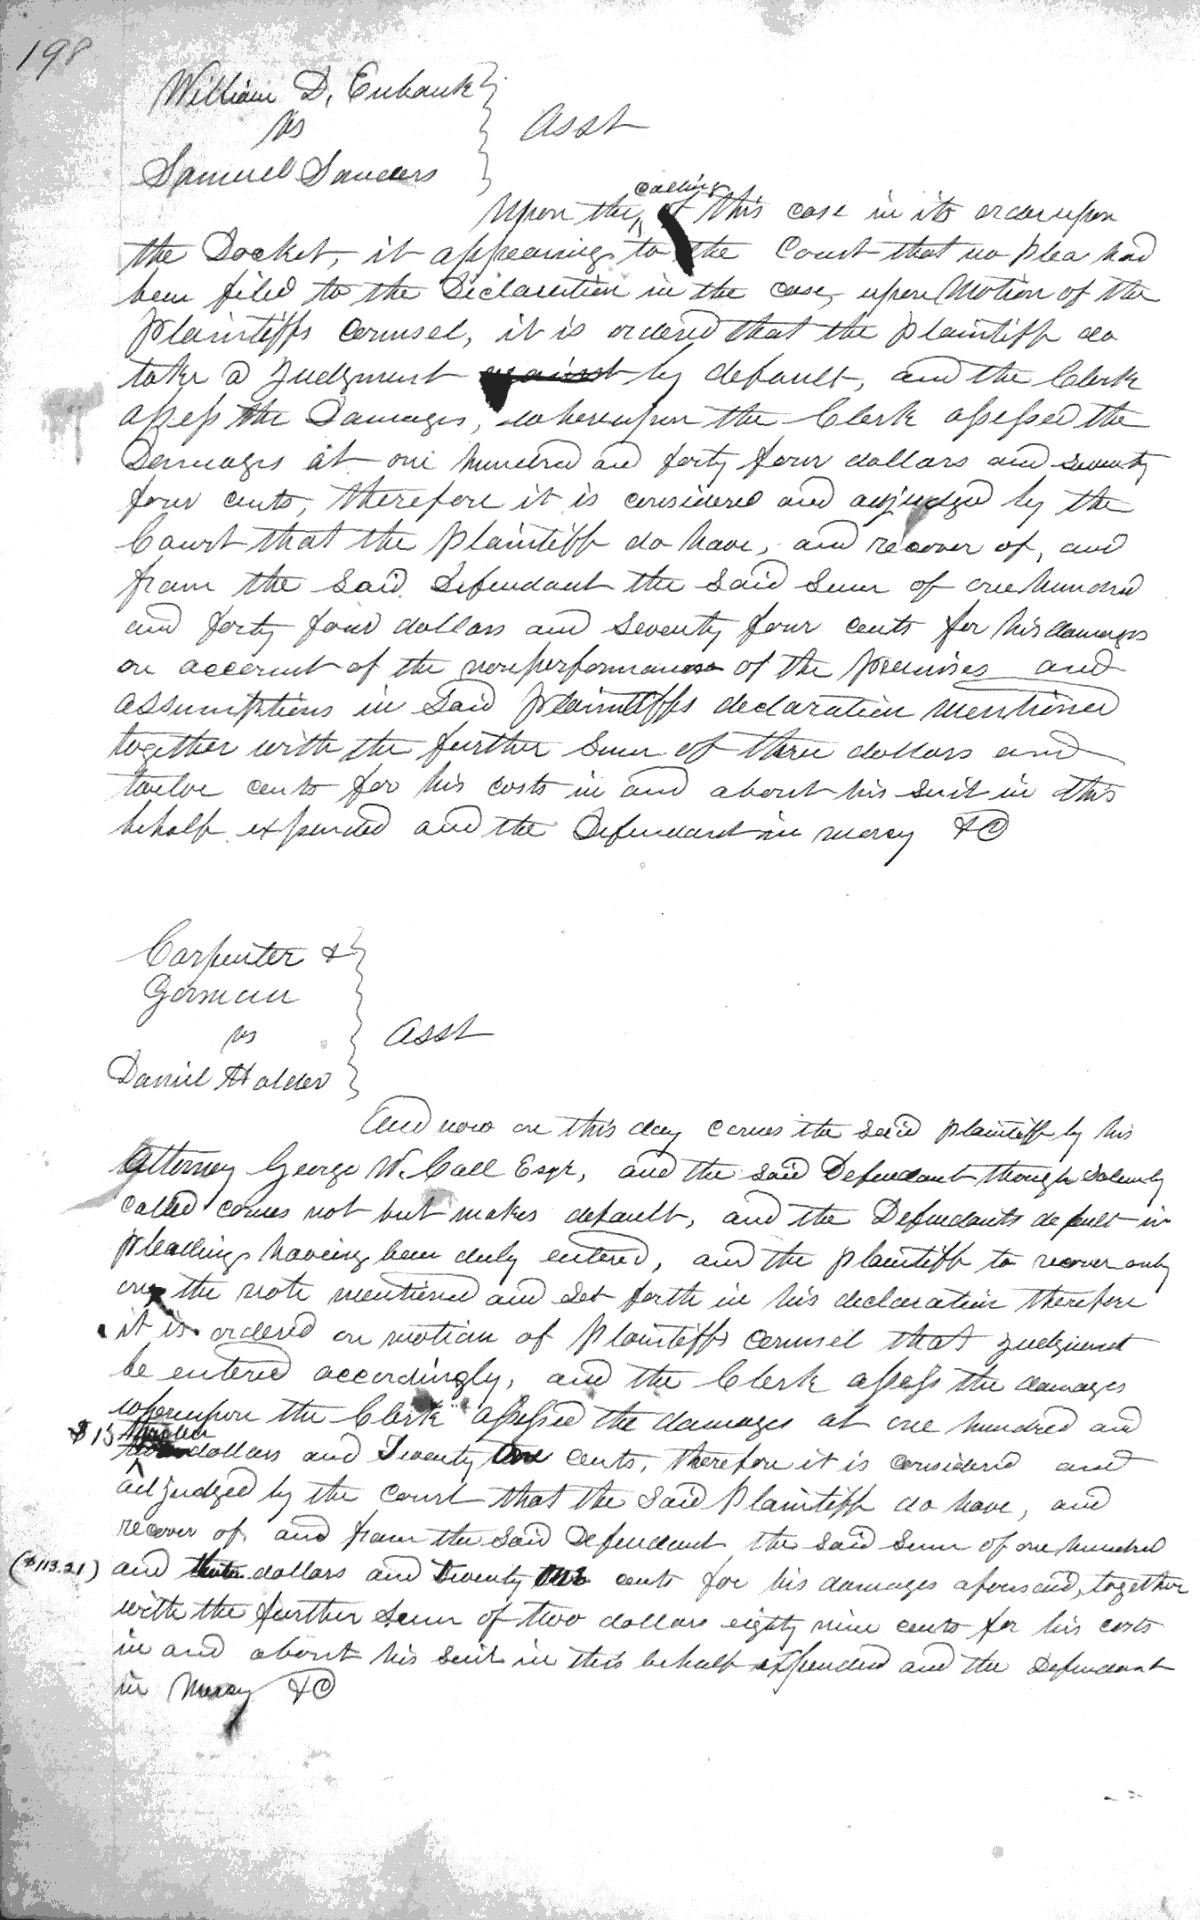 198
William D. Eubank
vs
Asst
Samuel Sanders
calling
Upon the of this case in its order upon
the Docket, it appearing to the Court that no plea had
been filed to the Declaration in the case, upon Motion of the
Plaintiffs Counsel, it is ordered that the plaintiff do
take a Judgment against by default, and the Clerk
assess the Damages, whereupon the Clerk assessed the
Damages at one hundred and forty four dollars and seventy
four cents, therefore it is considered and adjudged by the
Court that the plaintiff do have, and recover of, and
from the said Defendant the said sum of one hundred
and forty four dollars and seventy four cents for his damages
on account of the nonperformance of the promises and
assumptions in said plaintiffs declaration mentioned
together with the further sum of three dollars and
twelve cents for his costs in and about his suit in this
behalf expended and the Defendant in mercy &C
Carpenter &
Gorman
vs
Asst
Daniel Holder
And now on this day comes the said plaintiff by his
Attorney George W. Call Esqr, and the said Defendant though solemnly
called comes not but makes default, and the Defendants default in
pleading having been duly entered, and the plaintiff to recover only
on the note mentioned and set forth in his declaration therefore
it is ordered on motion of plaintiffs counsel that judgment
be entered accordingly, and the Clerk assess the damages
whereupon the Clerk assessed the damages at one hundred and
$13 thirteen
dollars and Twenty one cents, therefore it is considered and
adjudged by the court that the said plaintiff do have, and
recover of, and from the said Defendant, the said sum of one hundred
($113.21) and thirteen dollars and Twenty one cents for his damages aforesaid, together
with the further sum of two dollars eighty nine cents for his costs
in and about his suit in this behalf expended and the Defendant
in Mercy &C